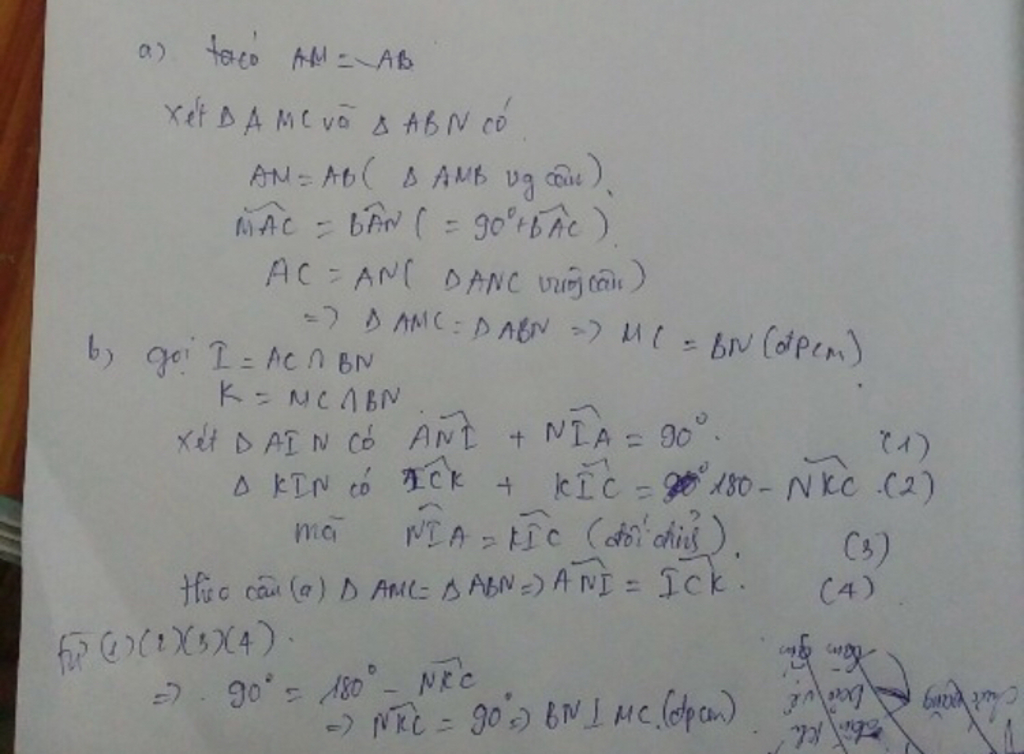 a) ta có AM = AB
Xét Δ AMC và Δ ABN có
AM = AB ( Δ AMB vg cân ).
\widehat{MAC} = \widehat{BAN} ( = 90° + \widehat{BAC} )
AC = AN ( Δ ANC vuông cân )
=> Δ AMC = Δ ABN => MC = BN (đpcm).
b) gọi I = AC ∩ BN
K = MC ∩ BN
Xét Δ AIN có \widehat{ANI} + \widehat{NIA} = 90°. (1)
Δ KIN có \widehat{ICK} + \widehat{KIC} = 180 - \widehat{NKC}. (2)
mà \widehat{NIA} = \widehat{KIC} (đối đỉnh). (3)
theo câu (a) Δ AMC = Δ ABN => \widehat{ANI} = \widehat{ICK}. (4)
từ (1)(2)(3)(4).
=> 90° = 180° - \widehat{NKC}
=> \widehat{NKC} = 90° => BN ⊥ MC. (đpcm)